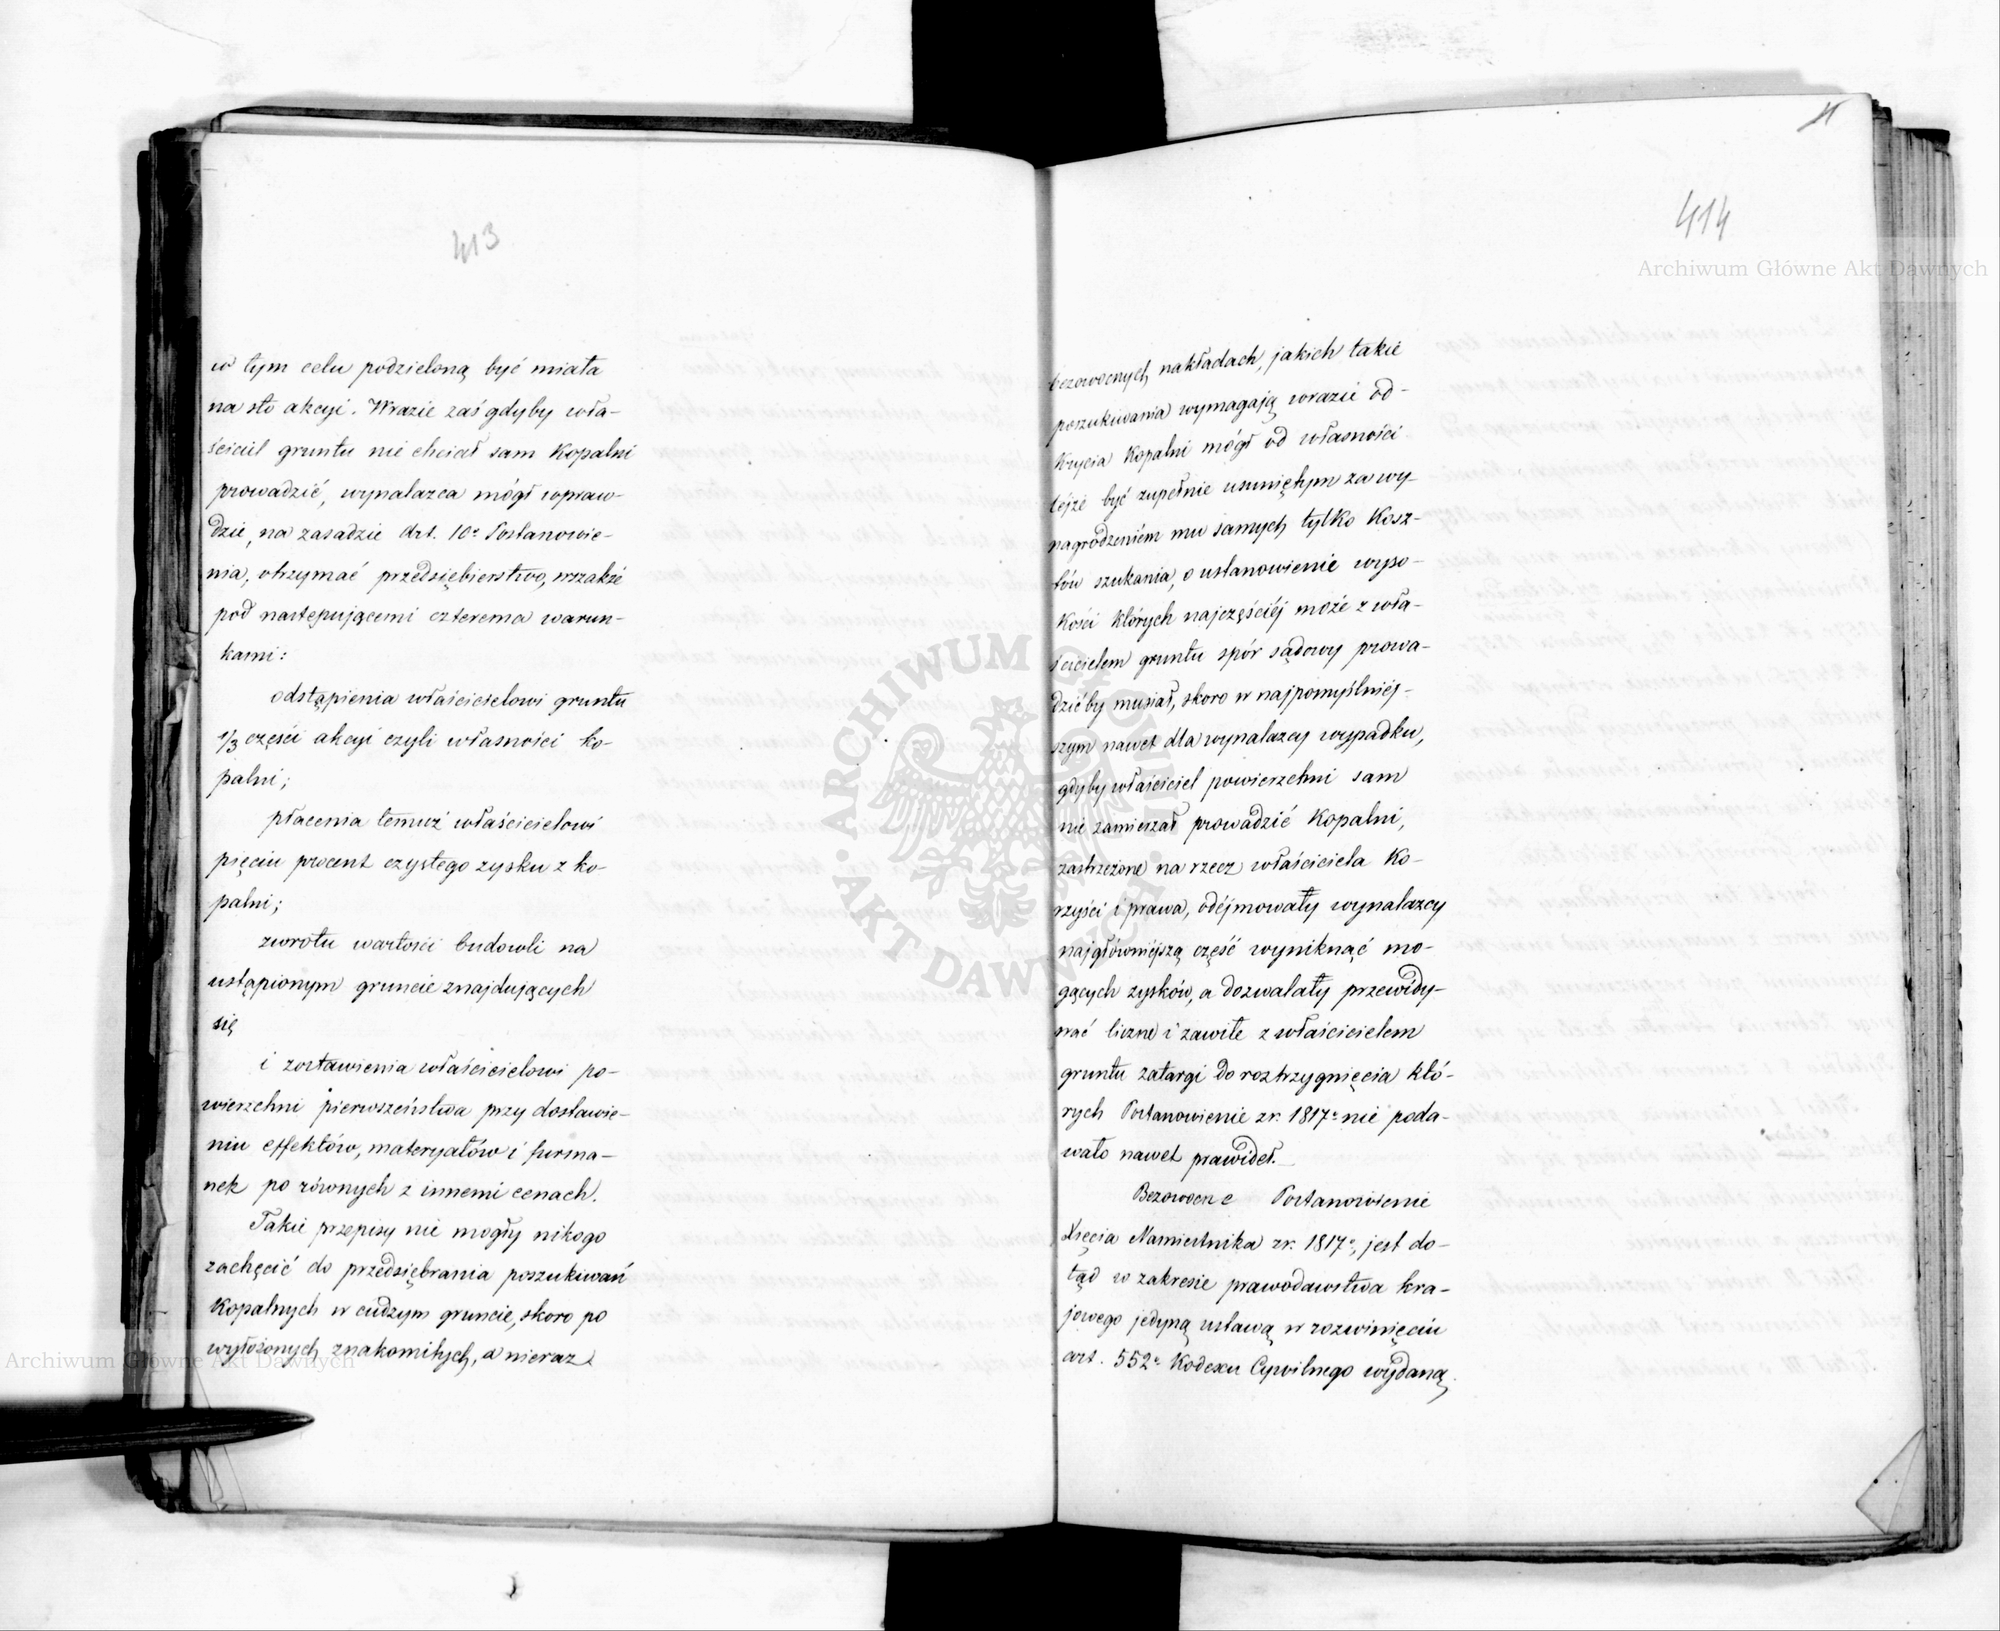 413
w tym celu podzieloną być miała
na sto akcyi. Wrazie zaś gdyby wła-
ściciel gruntu nie chciał sam Kopalni
prowadzić, wynalazca mógł wpraw-
dzie, na zasadzie Art. 10º Postanowie-
nia, otrzymać przedsiębierstwo, wszakże
pod następującemi czterema warun-
kami:
odstąpienia właścicielowi gruntu
1/3 części akcyi czyli własności ko-
palni;
płacenia temuż właścicielowi
pięciu procent czystego zysku z ko-
palni;
zwrotu wartości budowli na
ustąpionym gruncie znajdujących
się
i zostawienia właścicielowi po-
wierzchni pierwszeństwa przy dostawie-
niu effektów, materyałów i furma-
nek po równych z innemi cenach.
Takie przepisy nie mogły nikogo
zachęcić do przedsiębrania poszukiwań
Kopalnych w cudzym gruncie, skoro po
wyłożonych znakomitych, a nieraz
414
bezowocnych nakładach, jakich takie
poszukiwania wymagają wrazie od-
krycia Kopalni mógł od własności
tejże być zupełnie usuniętym za wy-
nagrodzeniem mu samych tylko Kosz-
tów szukania, o ustanowienie wyso-
kości których najczęściéj może z wła-
ścicielem gruntu spór sądowy prowa-
dzićby musiał, skoro w najpomyślniéj-
szym nawet dla wynalazcy wypadku,
gdyby właściciel powierzchni sam
nie zamierzał prowadzić Kopalni,
zastrzeżone na rzecz właściciela Ko-
rzyści i prawa, odéjmowały wynalazcy
najgłówniejszą część wyniknąć mo-
gących zysków, a dozwalały przewidy-
wać liczne i zawiłe z właścicielem
gruntu zatargi do roztrzygnięcia któ-
rych Postanowienie z r. 1817º nie poda-
wało nawet prawideł.
Bezowocne Postanowienie
Xięcia Namiestnika z r. 1817º, jest do-
tąd w zakresie prawodawstwa kra-
jowego jedyną ustawą w rozwinięciu
art. 552º Kodexu Cywilnego wydaną
Archiwum Główne Akt Dawnych
Archiwum Główne Akt Dawnych
ARCHIWUM GŁÓWNE
AKT DAWNYCH